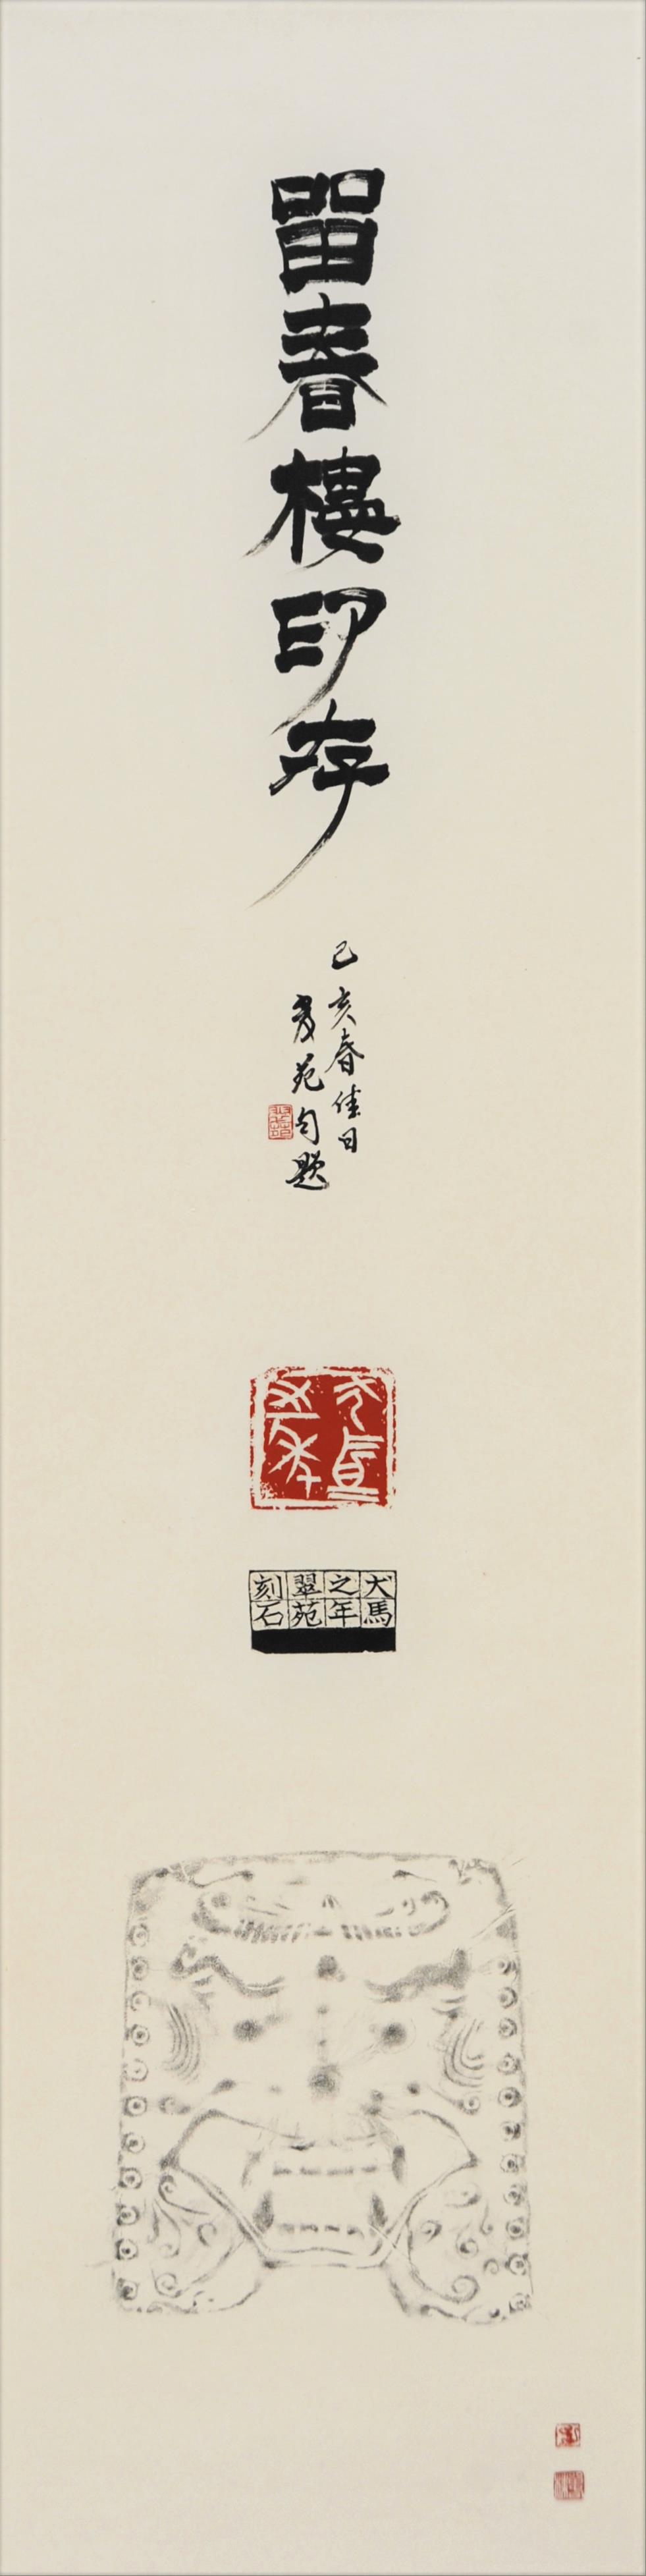 留春樓印存
己亥春佳日
翠苑自題
犬馬
之年
翠苑
刻石